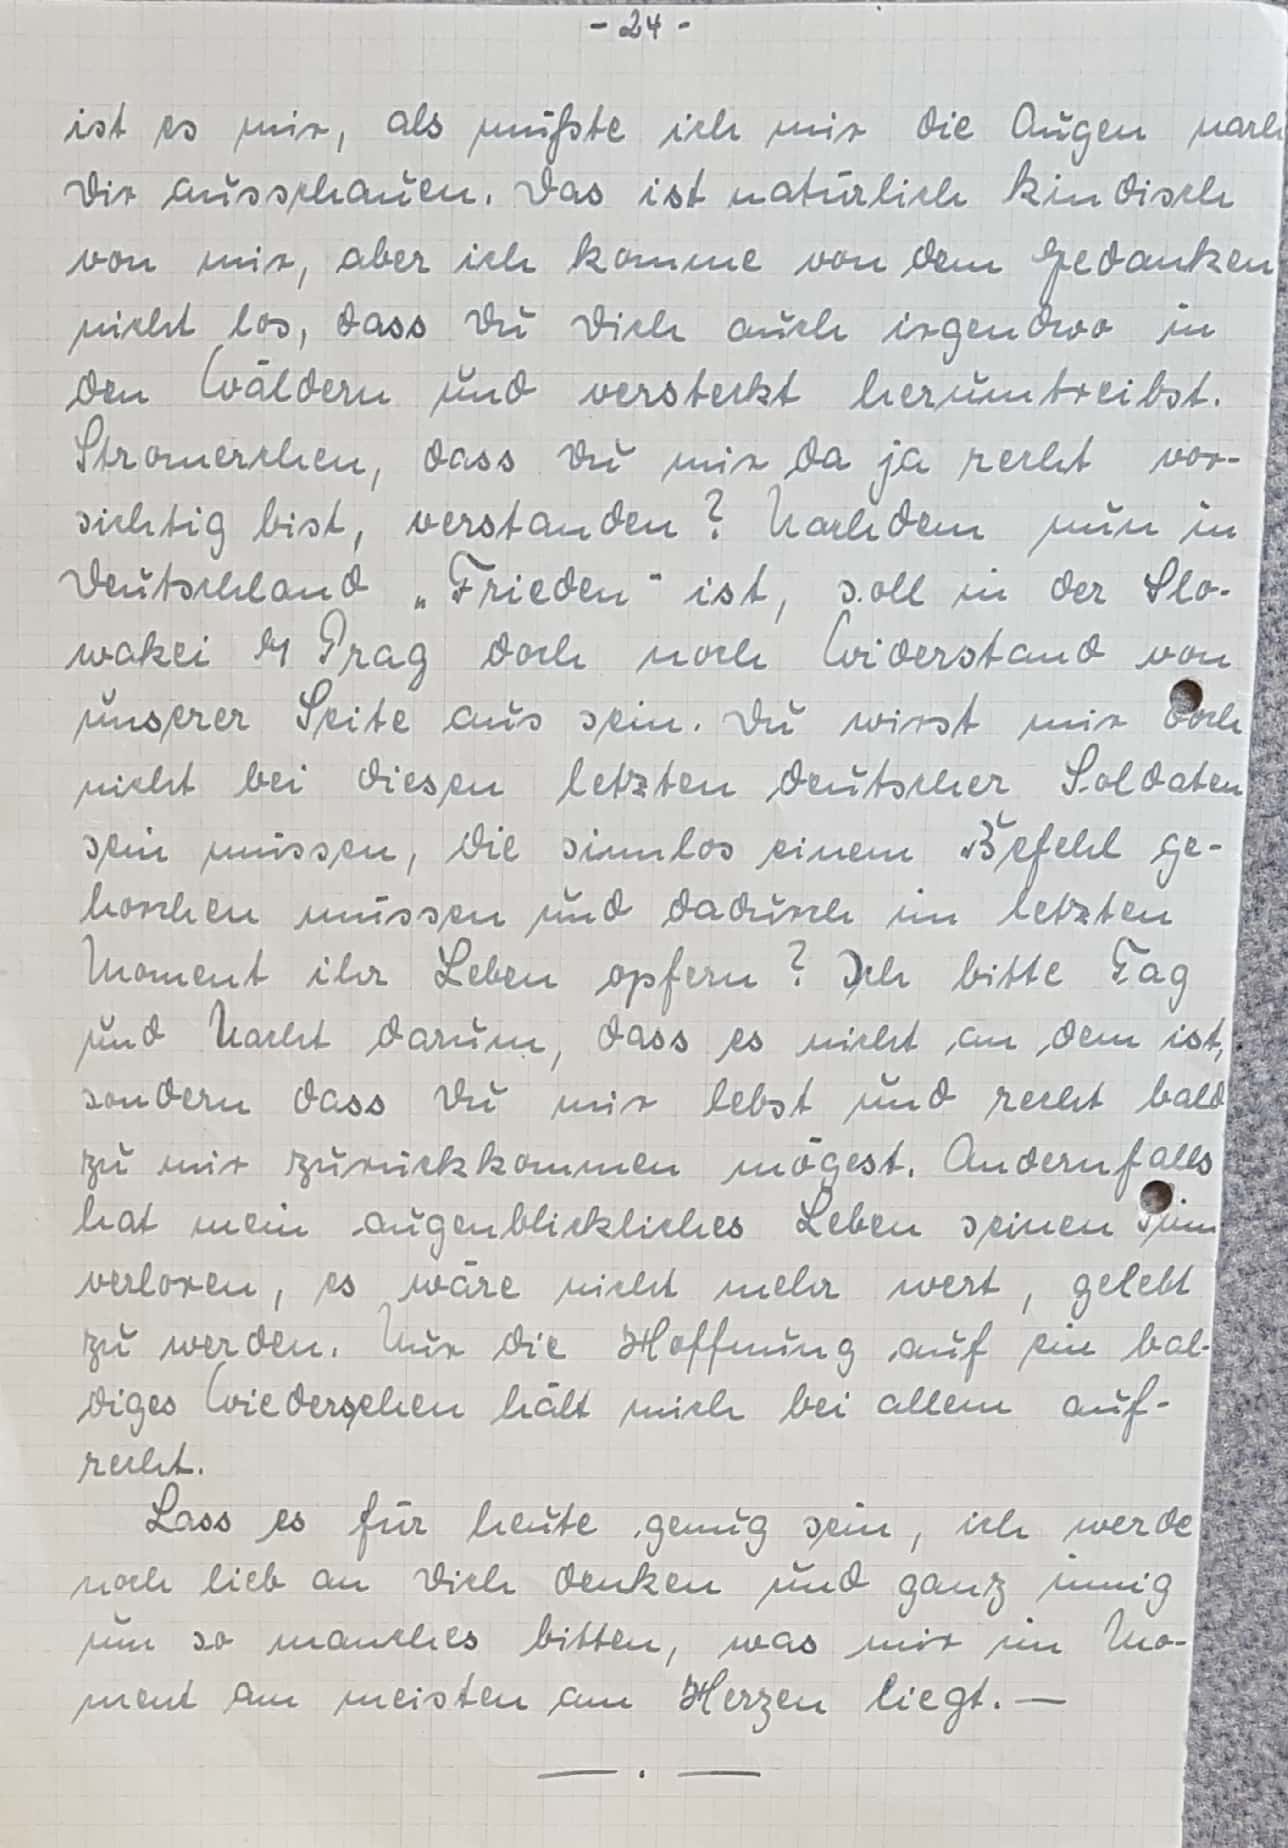 - 24 -
ist es mir, als müßte ich mir die Augen nach
Dir ausschauen. Das ist natürlich kindisch
von mir, aber ich komme von dem Gedanken
nicht los, dass Du Dich auch irgendwo in
den Wäldern und versteckt herumtreibst.
Stromerchen, dass Du mir da ja recht vor-
sichtig bist, verstanden? Nachdem nun in
Deutschland „Frieden" ist, soll in der Slo-
wakei Prag doch noch Widerstand von
unserer Seite aus sein. Du wirst mir doch
nicht bei diesen letzten deutscher Soldaten
sein müssen, die sinnlos einem Befehl ge-
horchen müssen und dadurch im letzten
Moment ihr Leben opfern? Ich bitte Tag
und Nacht darum, dass es nicht an dem ist,
sondern dass Du mir lebst und recht bald
zu mir zurückkommen mögest. Andernfalls
hat mein augenblickliches Leben seinen Sinn
verloren, es wäre nicht mehr wert, gelebt
zu werden. Nur die Hoffnung auf ein bal-
diges Wiedersehen hält mich bei allem auf-
recht.
Lass es für heute genug sein, ich werde
noch lieb an Dich denken und ganz innig
um so manches bitten, was mir im Mo-
ment am meisten am Herzen liegt. —
— . —